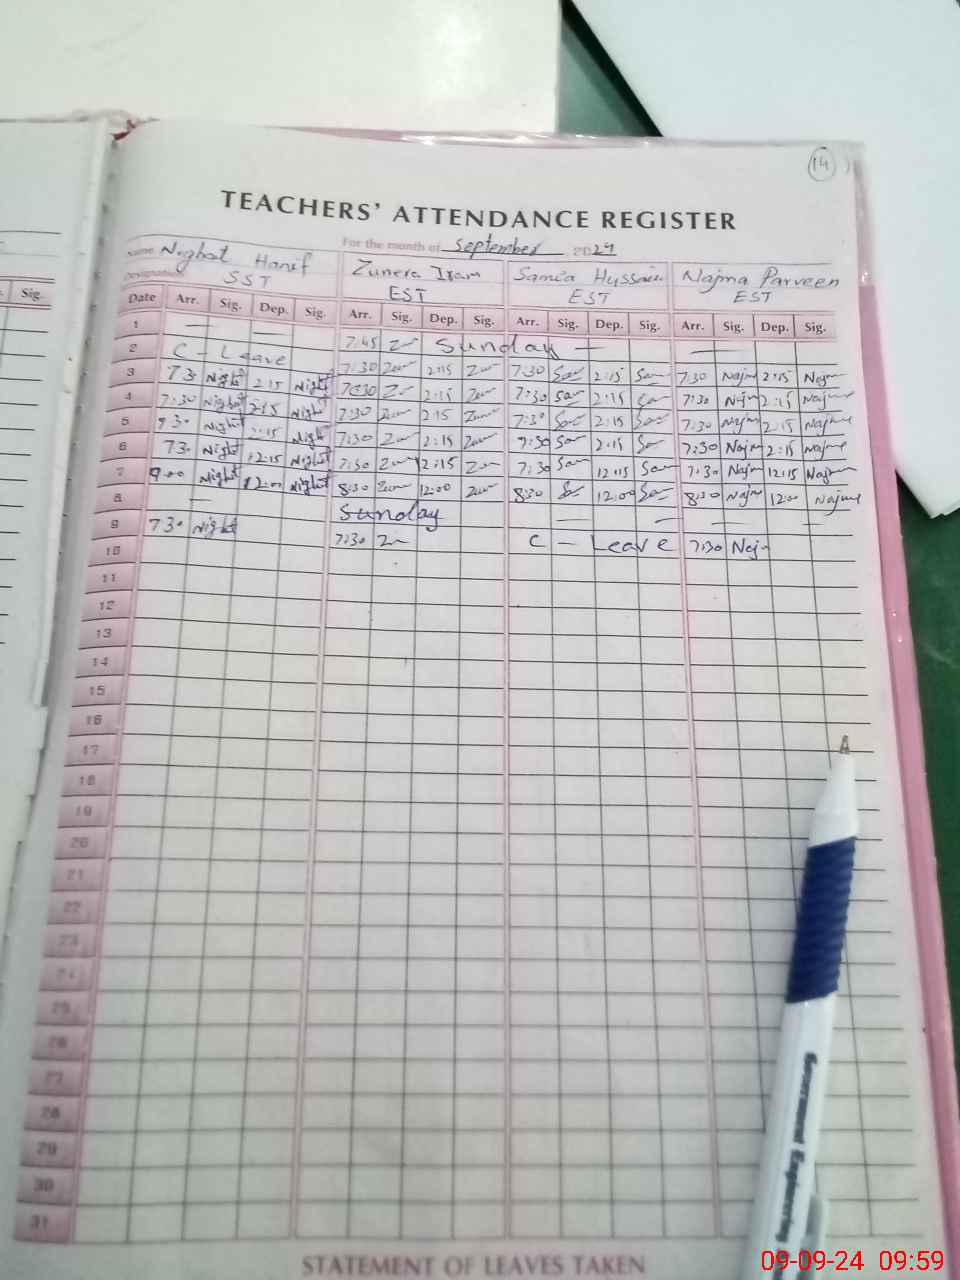 14
TEACHERS' ATTENDANCE REGISTER
For the month of September 2024
Name Nighat Hanif Zunera Iram Samia Hussain Najma Parveen
Designation SST EST EST EST
Sig.
Date Arr. Sig. Dep. Sig. Arr. Sig. Dep. Sig. Arr. Sig. Dep. Sig. Arr. Sig. Dep. Sig.
1 — — 7:45 Sunday — —
2 C - Leave 7:30 2:15 7:30 2:15 7:30 Najm 2:15 Najm
3 7 30 Night 2:15 Night 7:30 2:15 7:30 2:15 7:30 Najm 2:15 Najme
4 7:30 Night 2:15 Night 7:30 2:15 7:30 2:15 7:30 Najm 2:15 Najme
5 7 30 Night 2:15 Night 7:30 2:15 7:30 2:15 7:30 Najm 2:15 Najme
6 7 30 Night 12:15 Night 7:30 12:15 7:30 12:15 7:30 Najm 12:15 Najm
7 Night 12:00 Night 8:30 12:00 8:30 12:00 8:30 Najm 12:00 Najme
8 — Sunday — — — —
9 7 30 Night 7:30 C - Leave 7:30 Naj
10
11
12
13
14
15
16
17
18
19
20
21
22
23
24
25
26
27
28
29
30
31
STATEMENT OF LEAVES TAKEN
Government Engineering
09-09-24 09:59